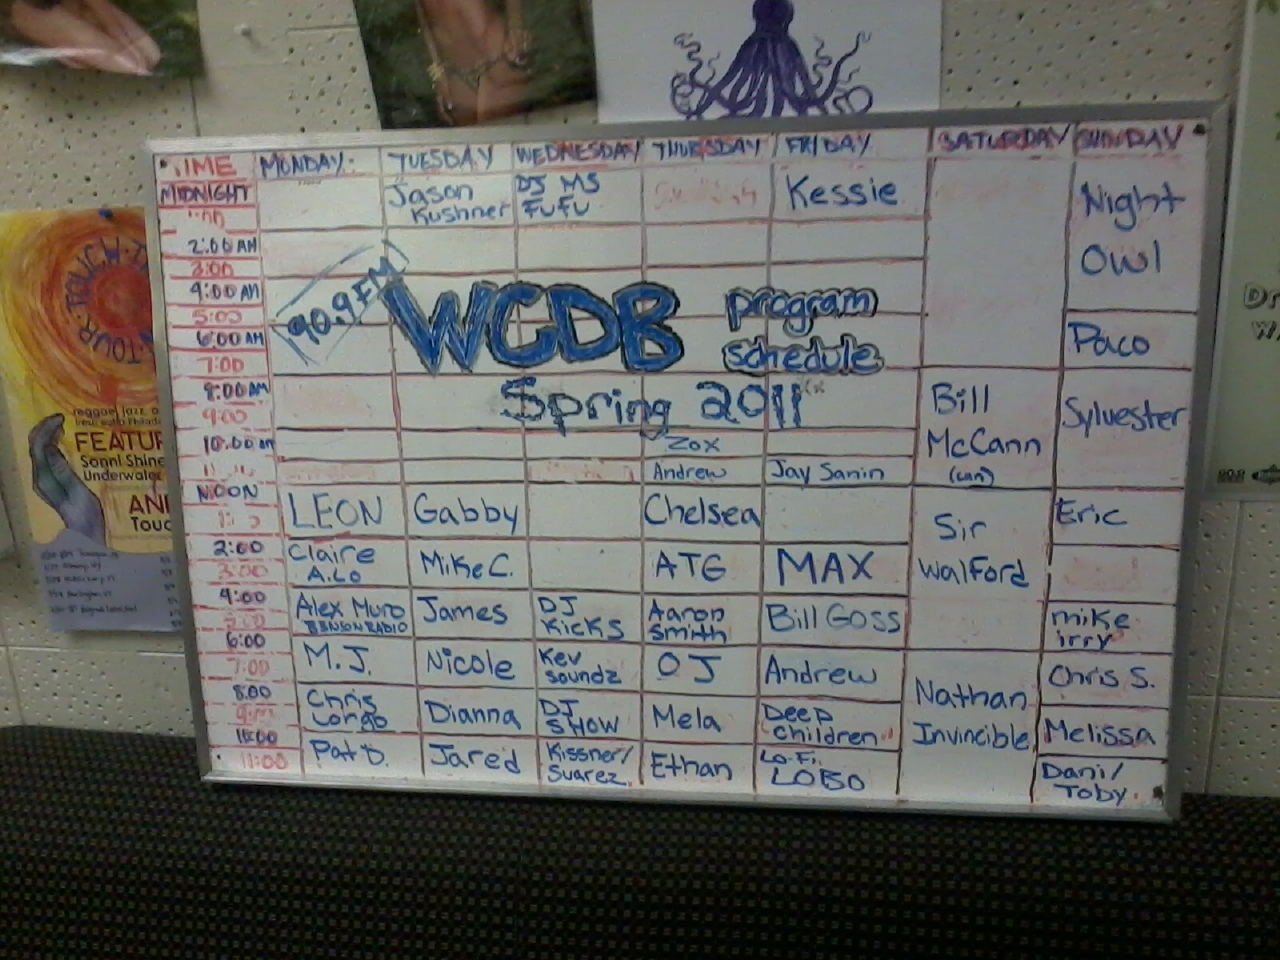 TIME MONDAY TUESDAY WEDNESDAY THURSDAY FRIDAY SATURDAY SUNDAY
MIDNIGHT Jason Kushner DJ MS FUFU Kessie Night Owl
2:00 AM
3:00
90.9 FM WCDB program schedule
4:00 AM
5:00
6:00 AM Paco
7:00
Spring 2011
8:00 AM Bill McCann Sylvester
9:00
10:00 am Zox
Andrew Jay Sanin
NOON LEON Gabby Chelsea Sir Walford Eric
2:00 Claire A.Lo Mike C. ATG MAX
3:00
4:00 Alex Muro BENSON RADIO James DJ KicKS Aaron Smith Bill Goss mike irry
5:00
6:00 M.J. Nicole Kev soundz OJ Andrew Nathan Invincible Chris S.
7:00
8:00 Chris Longo Dianna DJ SHOW Mela Deep Children Melissa
10:00 Pat D. Jared Kissner/ Suarez Ethan Lo-Fi LOBO Dani/ Toby
11:00
TOUCH
TOUR
reggae jazz
FEATUR
Sonni Shine
Underwater
AN
Touc